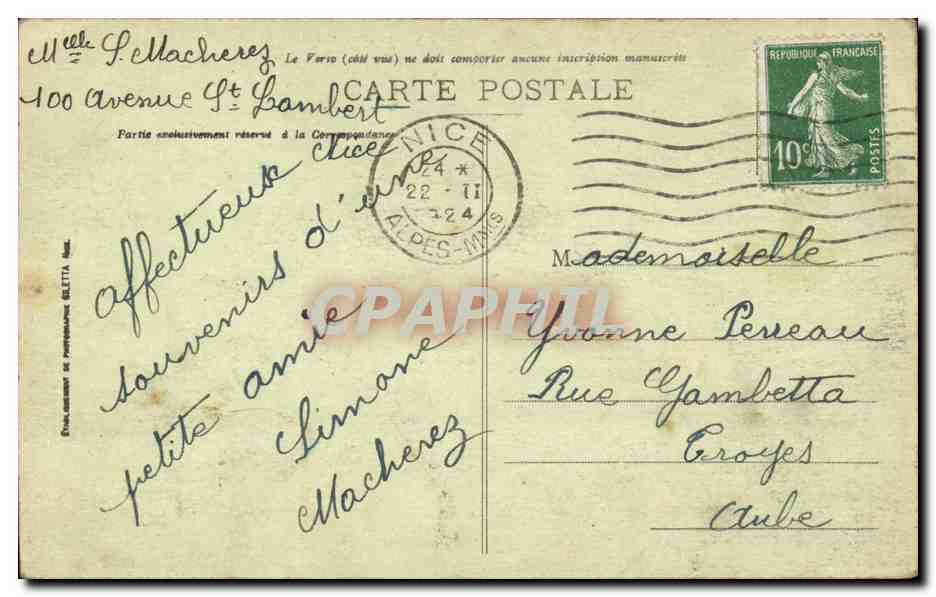 Melle S. Macherez
Le Verso (côté vue) ne doit comporter aucune inscription manuscrite
100 Avenue St Lambert
CARTE POSTALE
Partie exclusivement réservé à la Correspondance
Nice
Affectueux
souvenirs d'une
petite amie
Simone
Macherez
ÉTABLISSEMENT DE PHOTOGRAPHIE GILETTA NICE
NICE
24 *
22 - II
924
ALPES-Mmes
REPUBLIQUE FRANÇAISE
10c
POSTES
CPAPHIL
Mademoiselle
Yvonne Perreau
Rue Gambetta
Troyes
Aube